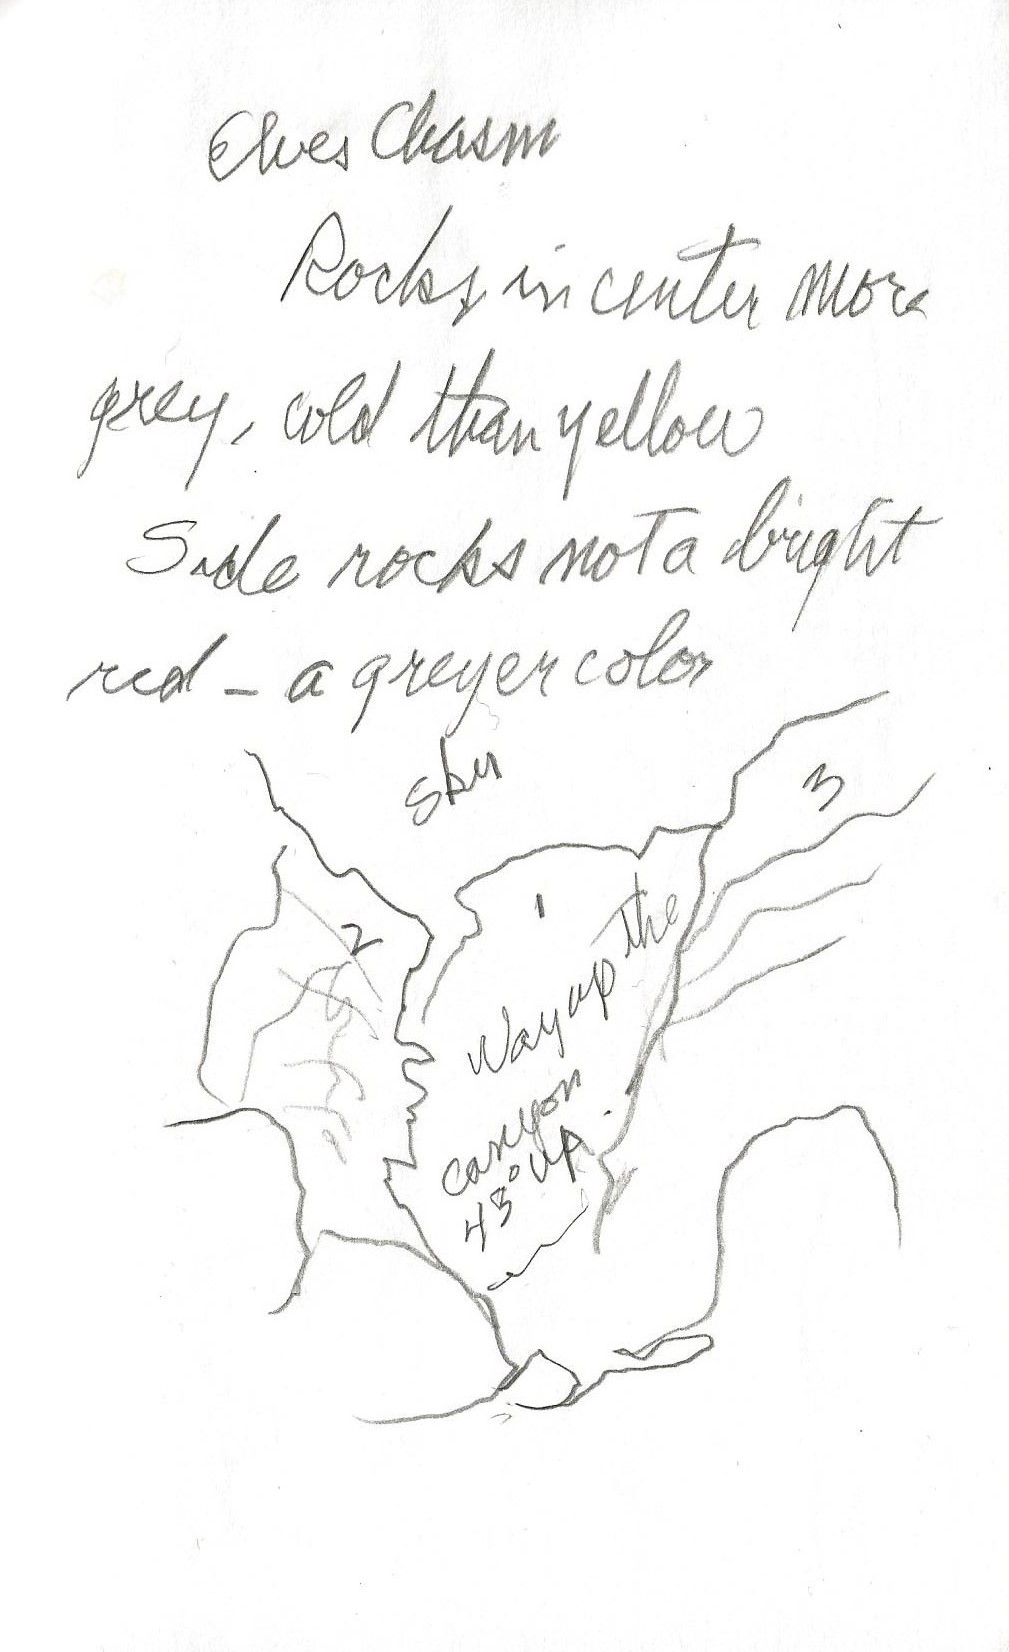 Elves Chasm
Rocks in center more
grey, cold than yellow
Side rocks not a bright
red – a greyer color
sky
3
1
2
Way up the
canyon
45° up